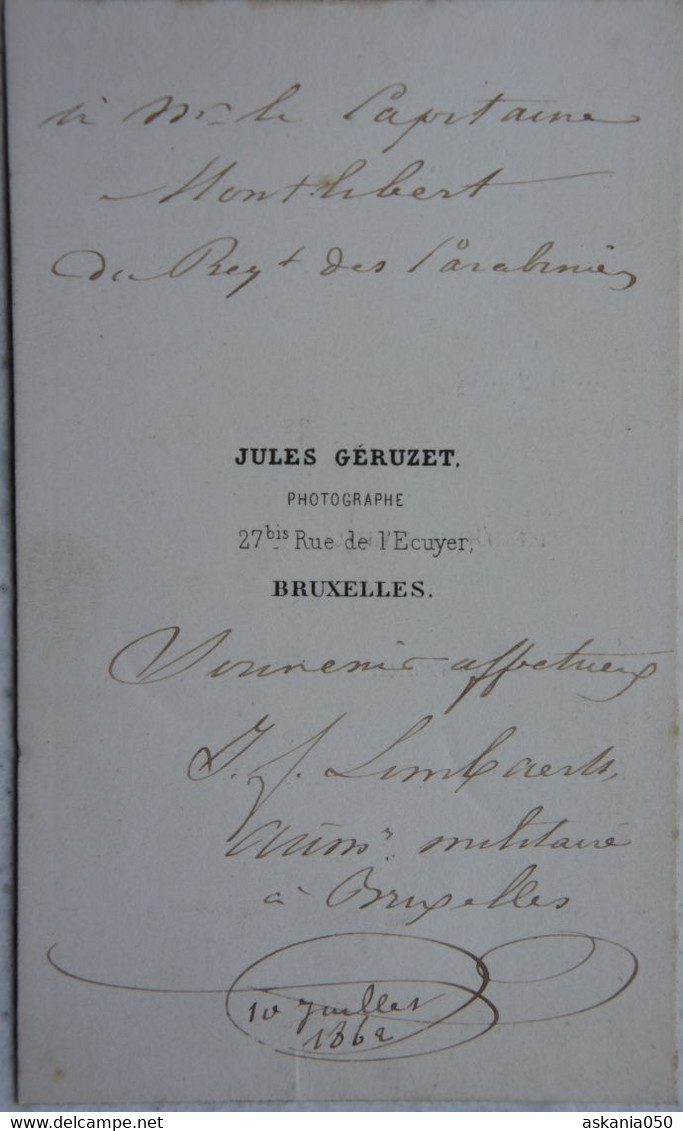 à Mr le Capitaine
Montlibert
du Regt des Carabiniers
JULES GÉRUZET,
PHOTOGRAPHE
27bis Rue de l'Ecuyer,
BRUXELLES.
Souvenir affectueux
J. J. Limbaerts,
Aumr militaire
à Bruxelles
10 Juillet
1862
www.delcampe.net
askania050